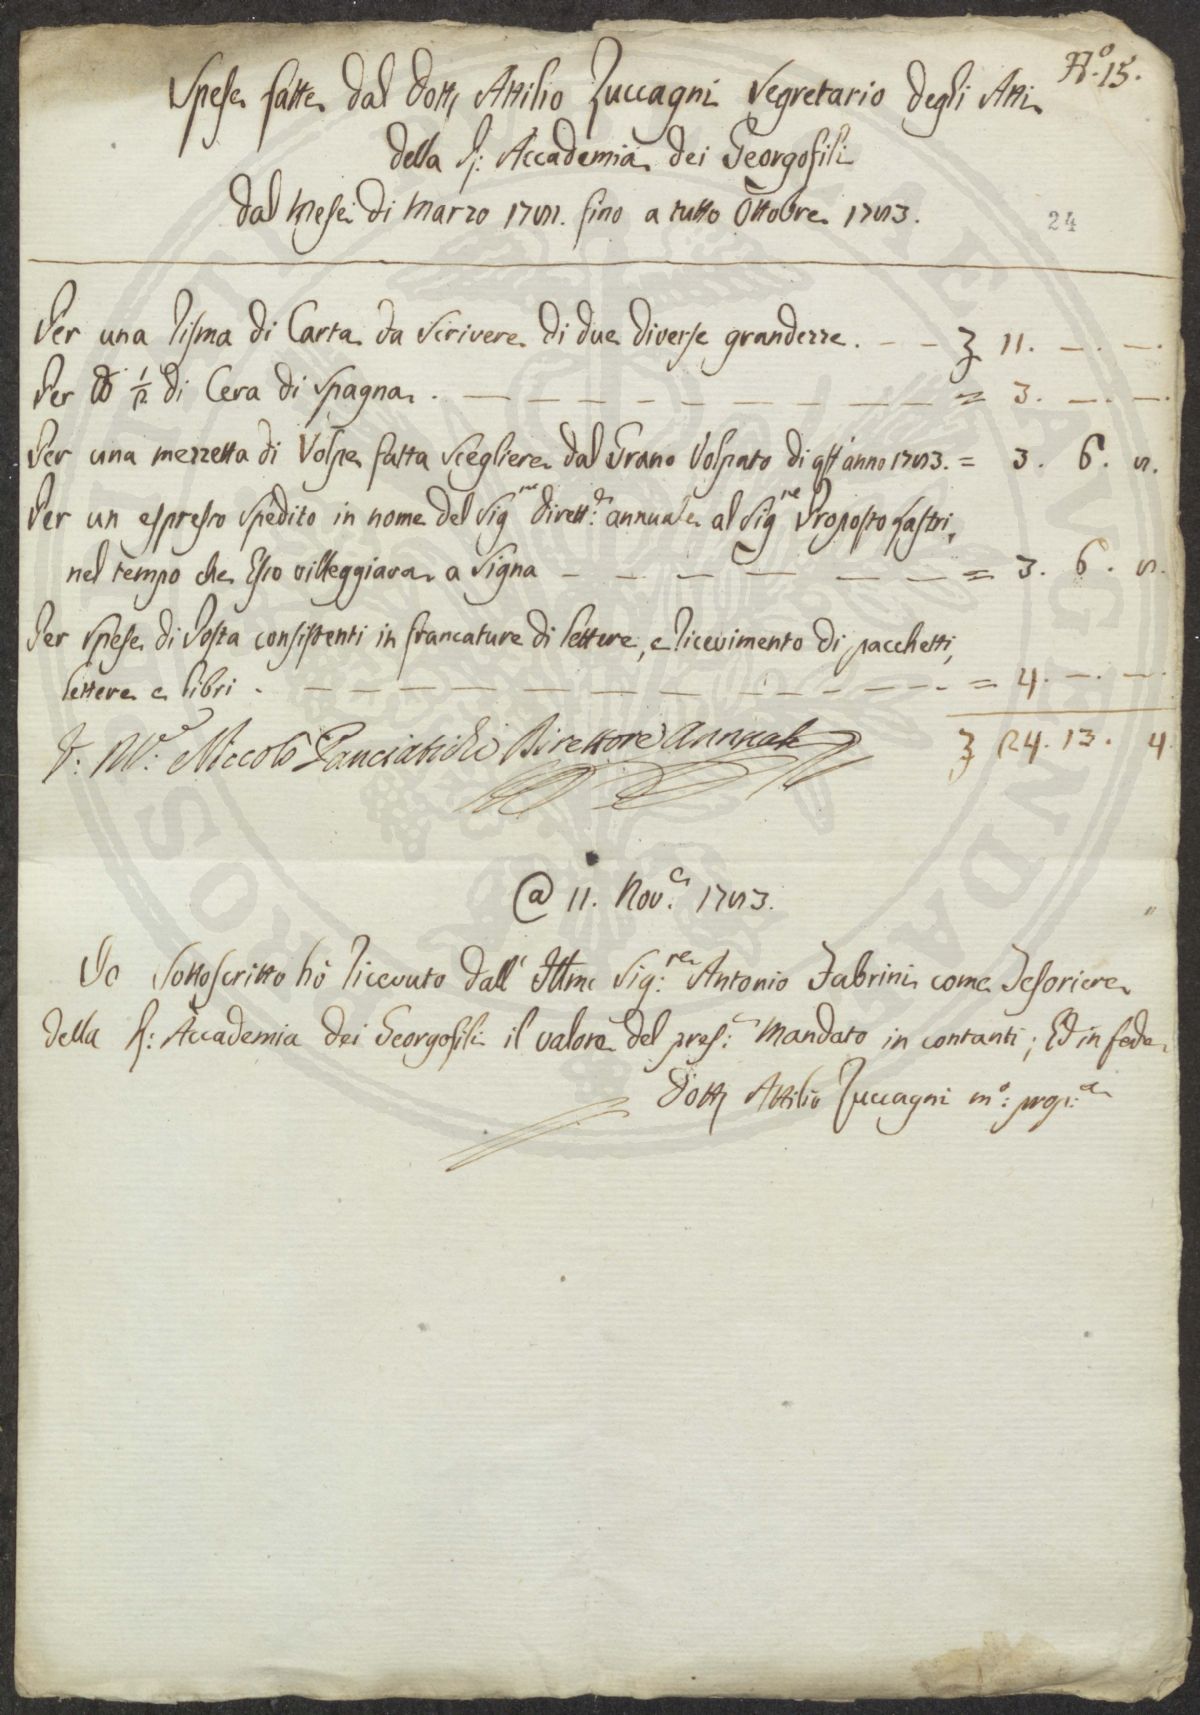 N.º 15.
Spese fatte dal Dott Attilio Zuccagni Segretario degli Atti
della R: Accademia dei Georgofili
dal Mese di Marzo 1781. fino a tutto Ottobre 1783.
24
Per una Risma di Carta da scrivere di due diverse grandezze. - - £ 11. -. -.
Per ℔ 1/2 di Cera di Spagna. - - - - - - - - = 3. -. -.
Per una mezzetta di Volpe fatta scegliere dal Grano Volpato di qst'anno 1783. = 3. 6. 8.
Per un espresso spedito in nome del Sig.re Dirett.e annuale al Sig.re Proposto Lastri,
nel tempo che Esso villeggiava a Signa - - - - - - - = 3. 6. 8.
Per spese di Posta consistenti in francature di lettere, e ricevimento di pacchetti,
lettere e libri. - - - - - - - - - - - = 4. -. -.
Niccolò Panciatichi Direttore Annuale
£ 24. 13. 4
@ 11. Nov.e 1783.
Io sottoscritto hò ricevuto dall' Illmo Sig:re Antonio Fabrini come Tesoriere
della R: Accademia dei Georgofili il valore del pres:e Mandato in contanti; Ed in fede
Dott Attilio Zuccagni mº: prop:a